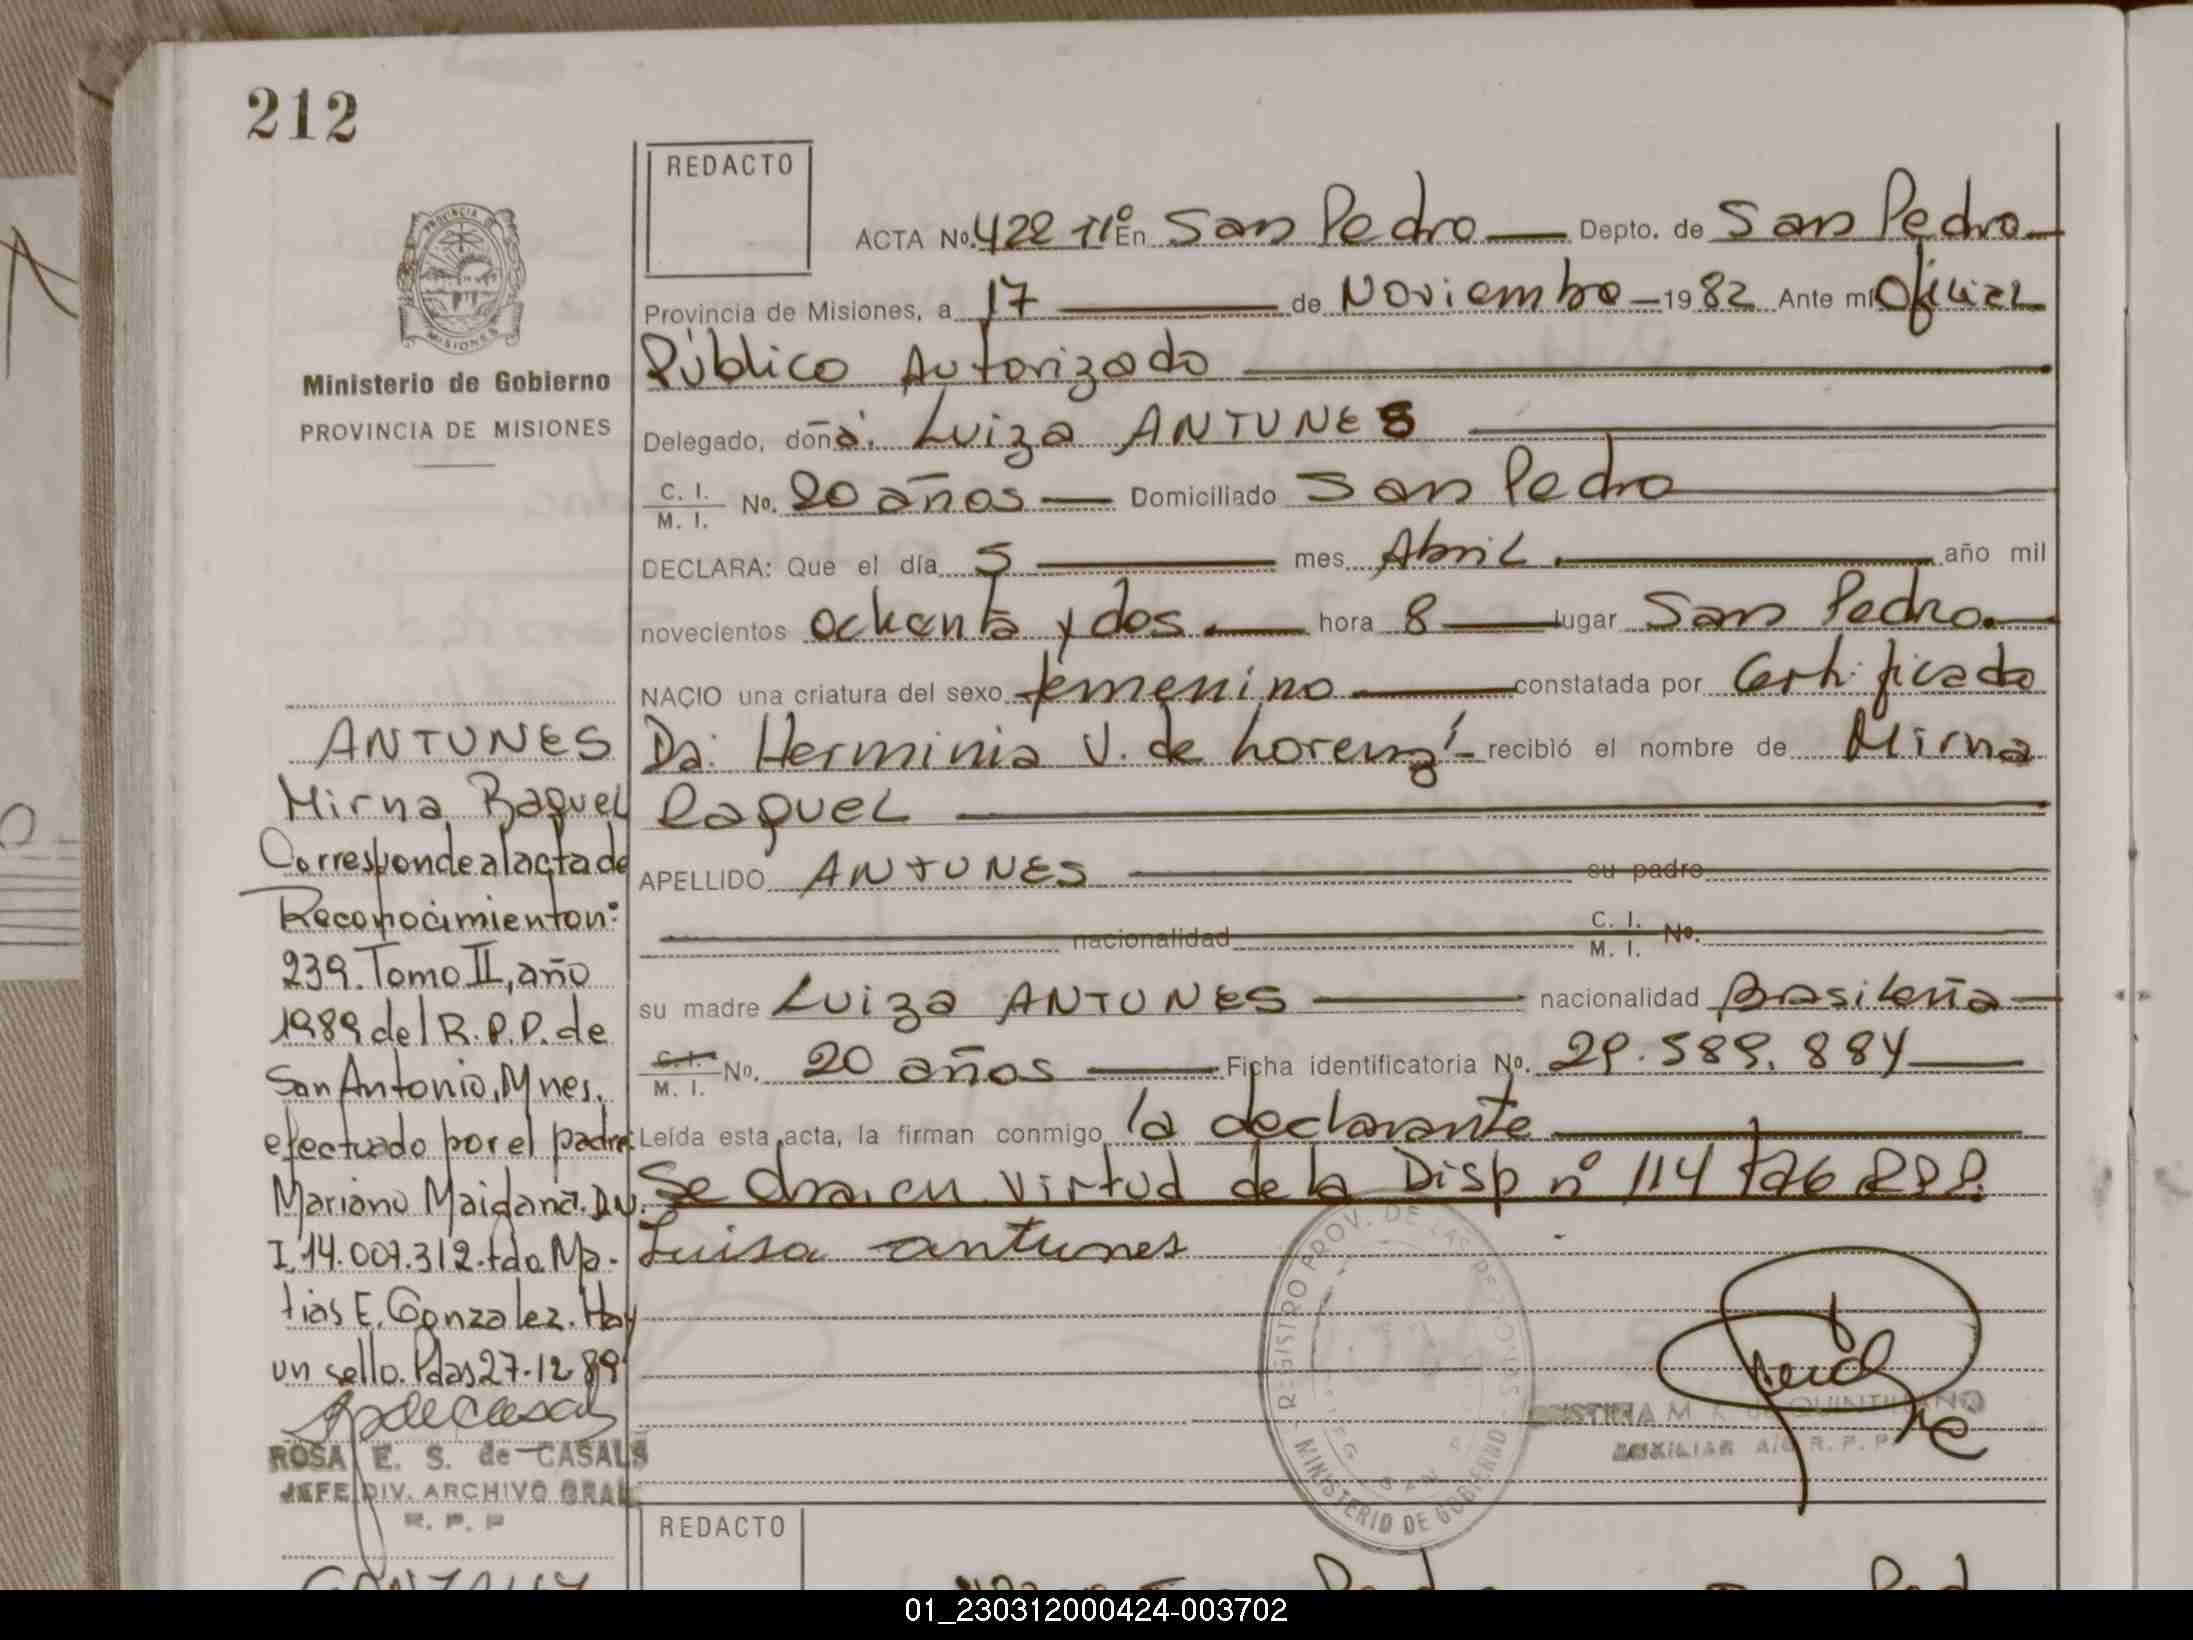 212
REDACTO
ACTA No. 422 Tº En San Pedro Depto. de San Pedro
Provincia de Misiones, a 17 de Noviembre 1982 Ante mí Oficial
Público Autorizado
Delegado, doña: Luiza ANTUNES
C. I. / M. I. No. 20 años Domiciliado San Pedro
DECLARA: Que el día 5 mes Abril año mil
novecientos ochenta y dos hora 8 lugar San Pedro
NACIO una criatura del sexo femenino constatada por Certificado
Da: Herminia V. de Lorenz recibió el nombre de Mirna
Raquel
APELLIDO ANTUNES su padre
nacionalidad C. I. / M. I. No.
su madre Luiza ANTUNES nacionalidad Brasileña
C. I. / M. I. No. 20 años Ficha identificatoria No. 29.589.884
Leída esta acta, la firman conmigo la declarante
Se en virtud de la Disp nº 114 R.P.P.
Luisa antunes
PROVINCIA
MISIONES
Ministerio de Gobierno
PROVINCIA DE MISIONES
ANTUNES
Mirna Raquel
Corresponde al acta de
Reconocimiento n:
239. Tomo II, año
1989 del R.P.P. de
San Antonio, Mnes.
efectuado por el padre:
Mariano Maidana. D.N.
I. 14.007.312. fdo. Ma-
tias E. Gonzalez. Hay
un sello. Pdas 27-12-89
ROSA E. S. de CASALS
JEFE DIV. ARCHIVO GRAL
R. P. P
REGISTRO PROV. DE LAS PERSONAS
MINISTERIO DE GOBIERNO
M. R. de QUINTILIANO
AUXILIAR A/C R. P. P
REDACTO
01_230312000424-003702